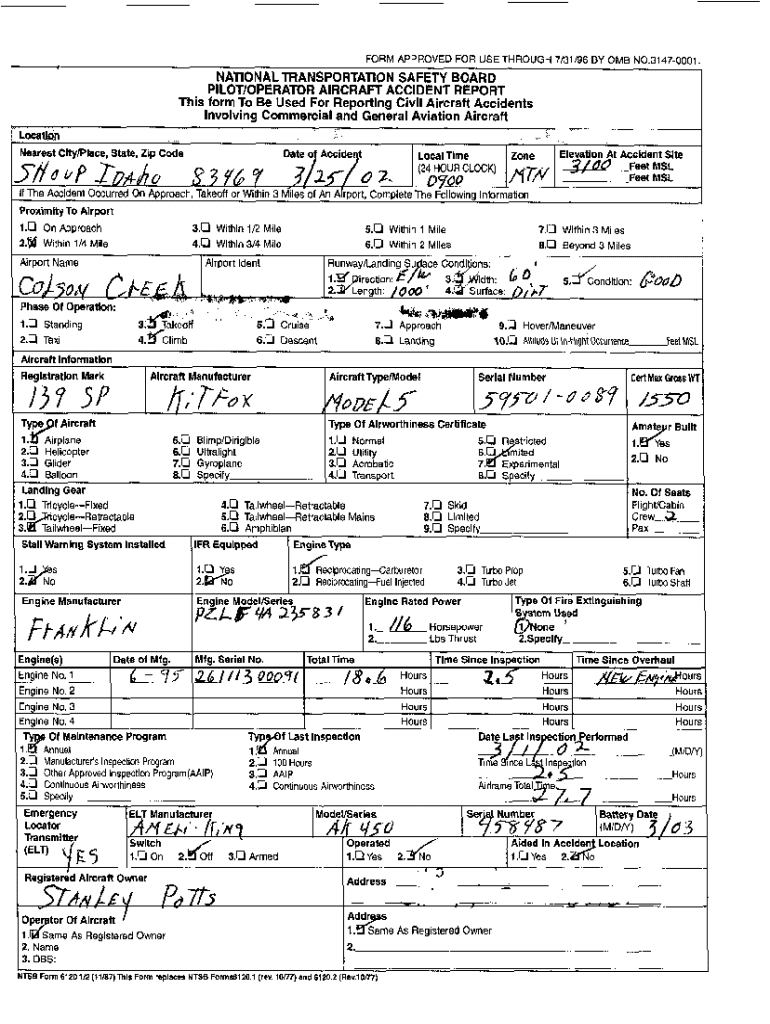 FORM APPROVED FOR USE THROUGH 7/31/96 BY OMB NO.3147-0001.
NATIONAL TRANSPORTATION SAFETY BOARD
PILOT/OPERATOR AIRCRAFT ACCIDENT REPORT
This form To Be Used For Reporting Civil Aircraft Accidents
Involving Commercial and General Aviation Aircraft
Location
Nearest City/Place, State, Zip Code Date of Accident Local Time (24 HOUR CLOCK) Zone Elevation At Accident Site
SHOUP IDAHO 83469 3/25/02 0900 MTN 3100 Feet MSL
Feet MSL
If The Accident Occurred On Approach, Takeoff or Within 3 Miles of An Airport, Complete The Following Information
Proximity To Airport
1. On Approach 3. Within 1/2 Mile 5. Within 1 Mile 7. Within 3 Miles
2. Within 1/4 Mile 4. Within 3/4 Mile 6. Within 2 Miles 8. Beyond 3 Miles
Airport Name Airport Ident Runway/Landing Surface Conditions:
COLSON CREEK 1. Direction: E/W 3. Width: 60' 5. Condition: GOOD
2. Length: 1000' 4. Surface: DIRT
Phase Of Operation:
1. Standing 3. Takeoff 5. Cruise 7. Approach 9. Hover/Maneuver
2. Taxi 4. Climb 6. Descent 8. Landing 10. Altitude Of In-flight Occurrence Feet MSL
Aircraft Information
Registration Mark Aircraft Manufacturer Aircraft Type/Model Serial Number Cert Max Gross WT
139 SP KITFOX MODEL 5 59501-0089 1550
Type Of Aircraft Type Of Airworthiness Certificate Amateur Built
1. Airplane 5. Blimp/Dirigible 1. Normal 5. Restricted 1. Yes
2. Helicopter 6. Ultralight 2. Utility 6. Limited 2. No
3. Glider 7. Gyroplane 3. Acrobatic 7. Experimental
4. Balloon 8. Specify 4. Transport 8. Specify
Landing Gear No. Of Seats
1. Tricycle—Fixed 4. Tailwheel—Retractable 7. Skid Flight/Cabin
2. Tricycle—Retractable 5. Tailwheel—Retractable Mains 8. Limited Crew 2
3. Tailwheel—Fixed 6. Amphibian 9. Specify Pax
Stall Warning System Installed IFR Equipped Engine Type
1. Yes 1. Yes 1. Reciprocating—Carburetor 3. Turbo Prop 5. Turbo Fan
2. No 2. No 2. Reciprocating—Fuel Injected 4. Turbo Jet 6. Turbo Shaft
Engine Manufacturer Engine Model/Series Engine Rated Power Type Of Fire Extinguishing System Used
FRANKLIN PZL F 4A 235831 1. 116 Horsepower 1 None
2. Lbs Thrust 2. Specify
Engine(s) Date of Mfg. Mfg. Serial No. Total Time Time Since Inspection Time Since Overhaul
Engine No. 1 6-95 26111300091 18.6 Hours 2.5 Hours NEW ENGINE Hours
Engine No. 2 Hours Hours Hours
Engine No. 3 Hours Hours Hours
Engine No. 4 Hours Hours Hours
Type Of Maintenance Program Type Of Last Inspection Date Last Inspection Performed
1. Annual 1. Annual 3/1/02 (M/D/Y)
2. Manufacturer's Inspection Program 2. 100 Hours Time Since Last Inspection
3. Other Approved Inspection Program (AAIP) 3. AAIP 2.5 Hours
4. Continuous Airworthiness 4. Continuous Airworthiness Airframe Total Time
5. Specify 27.7 Hours
Emergency Locator Transmitter (ELT) YES ELT Manufacturer Model/Series Serial Number Battery Date
AMERI-KING AK 450 458487 (M/D/Y) 3/03
Switch Operated Aided In Accident Location
1. On 2. Off 3. Armed 1. Yes 2. No 1. Yes 2. No
Registered Aircraft Owner Address
STANLEY POTTS
Operator Of Aircraft Address
1. Same As Registered Owner 1. Same As Registered Owner
2. Name 2.
3. DBS:
NTSB Form 6120.1/2 (11/87) This Form replaces NTSB Forms 6120.1 (rev. 10/77) and 6120.2 (Rev. 10/77)